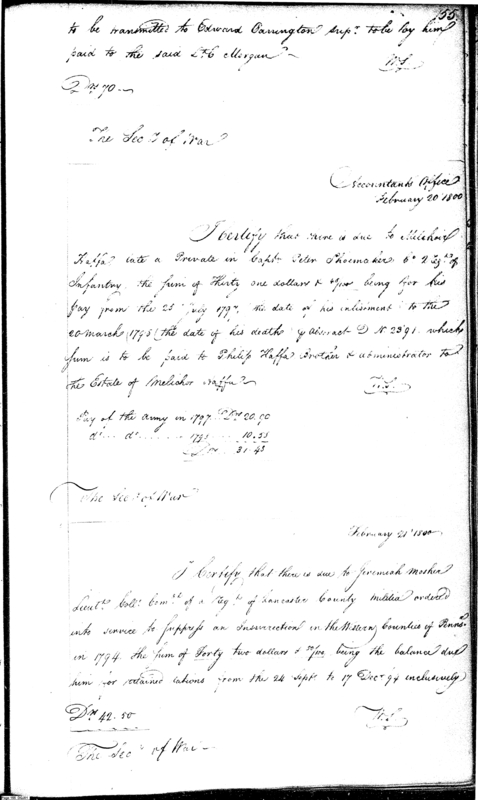 155
to be transmitted to Edward Carrington Supr. to be by him
paid to the said Morgan
W.S.
Drs 70
The Secy of War
Accountants Office
February 20th 1800
I certify that there is due to Melchior
Haffa late a Private in Capt Peter Shoemaker Co 2 Regt of
Infantry the sum of Thirty one dollars & being for his
pay from the 25 July 1797 the date of his inlistment to the
20 March 1798 the date of his death Abstract D No 2391 which
sum is to be paid to Philip Haffa Brother & administrator to
the Estate of Melchior Haffa
W.S.
Pay of the Army in 1797 Drs 20.90
do do 1798 10.55
Drs 31.45
The Secy of War
February 21st 1800
I Certify that there is due to Jeremiah Mosher
Lieut. Coll. Comdt of a Regt of Lancaster County Militia ordered
into service to suppress an Insurrection in the Western Counties of Penna.
in 1794. the sum of Forty two dollars & 50/100 being the balance due
him for retained rations from the 24 Sept to 17 Decr 94 inclusively
Drs 42.50
W.S.
The Secy of War